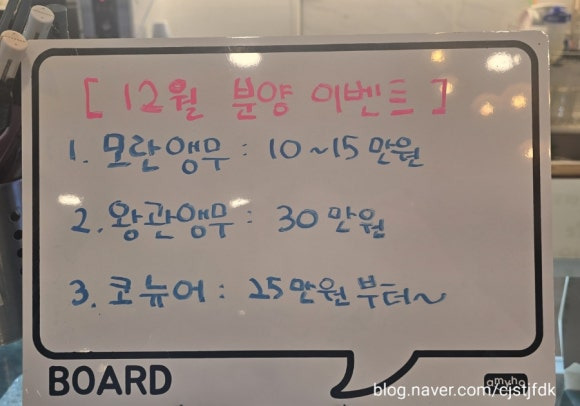 [ 12월 분양 이벤트 ]
1. 모란앵무 : 10~15만원
2. 왕관앵무 : 30만원
3. 코뉴어 : 25만원부터~
BOARD
amyho
blog.naver.com/ejstjfdk